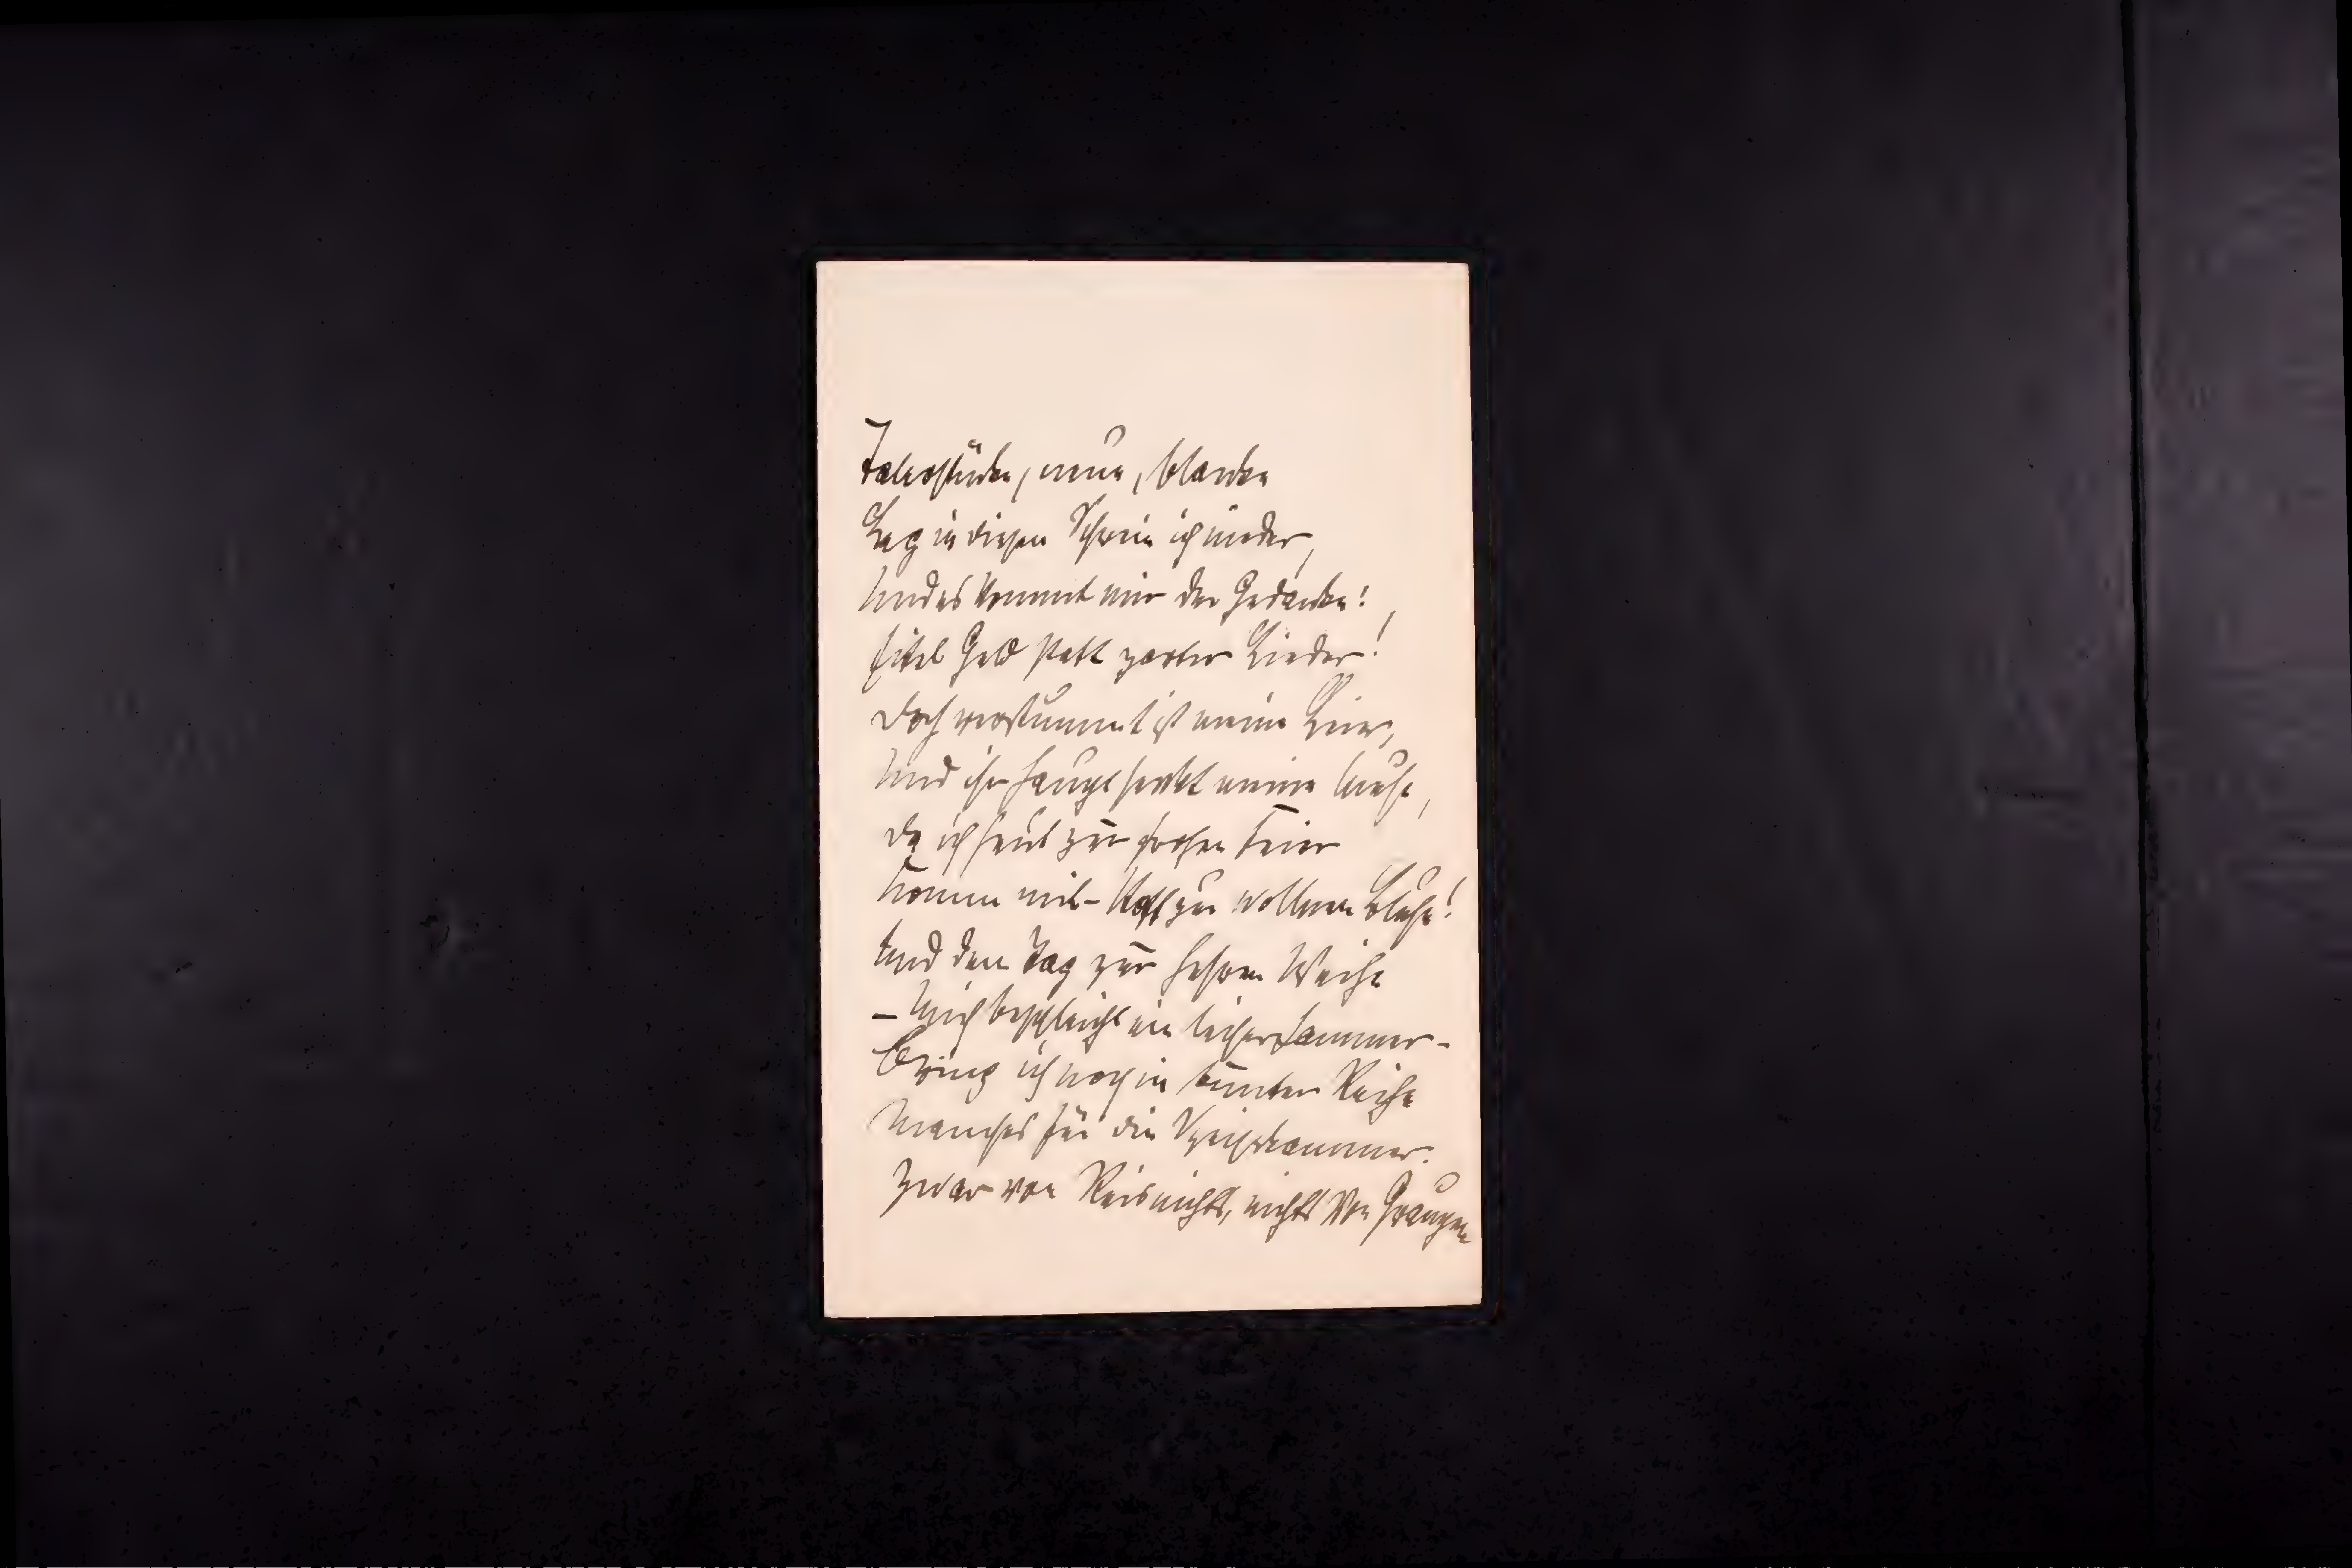 Talerstücke, neue, blanke
Leg in diesen Schrein ich nieder,
Und es kommt mir der Gedanke:
Eitel Geld statt zarter Lieder!
Doch verstummt ist meine Leier,
Und ihr Haupt senkt meine Muse,
Da ich heut zur frohen Feier
Komme mit – Stoff zur wollnen Bluse!
Und dem Tag zur hehren Weihe
– Mich beschleicht ein leiser Jammer –
Bring ich noch in bunter Reihe
Manches für die Speisekammer.
Zwar von Reis nichts, nichts von Graupen